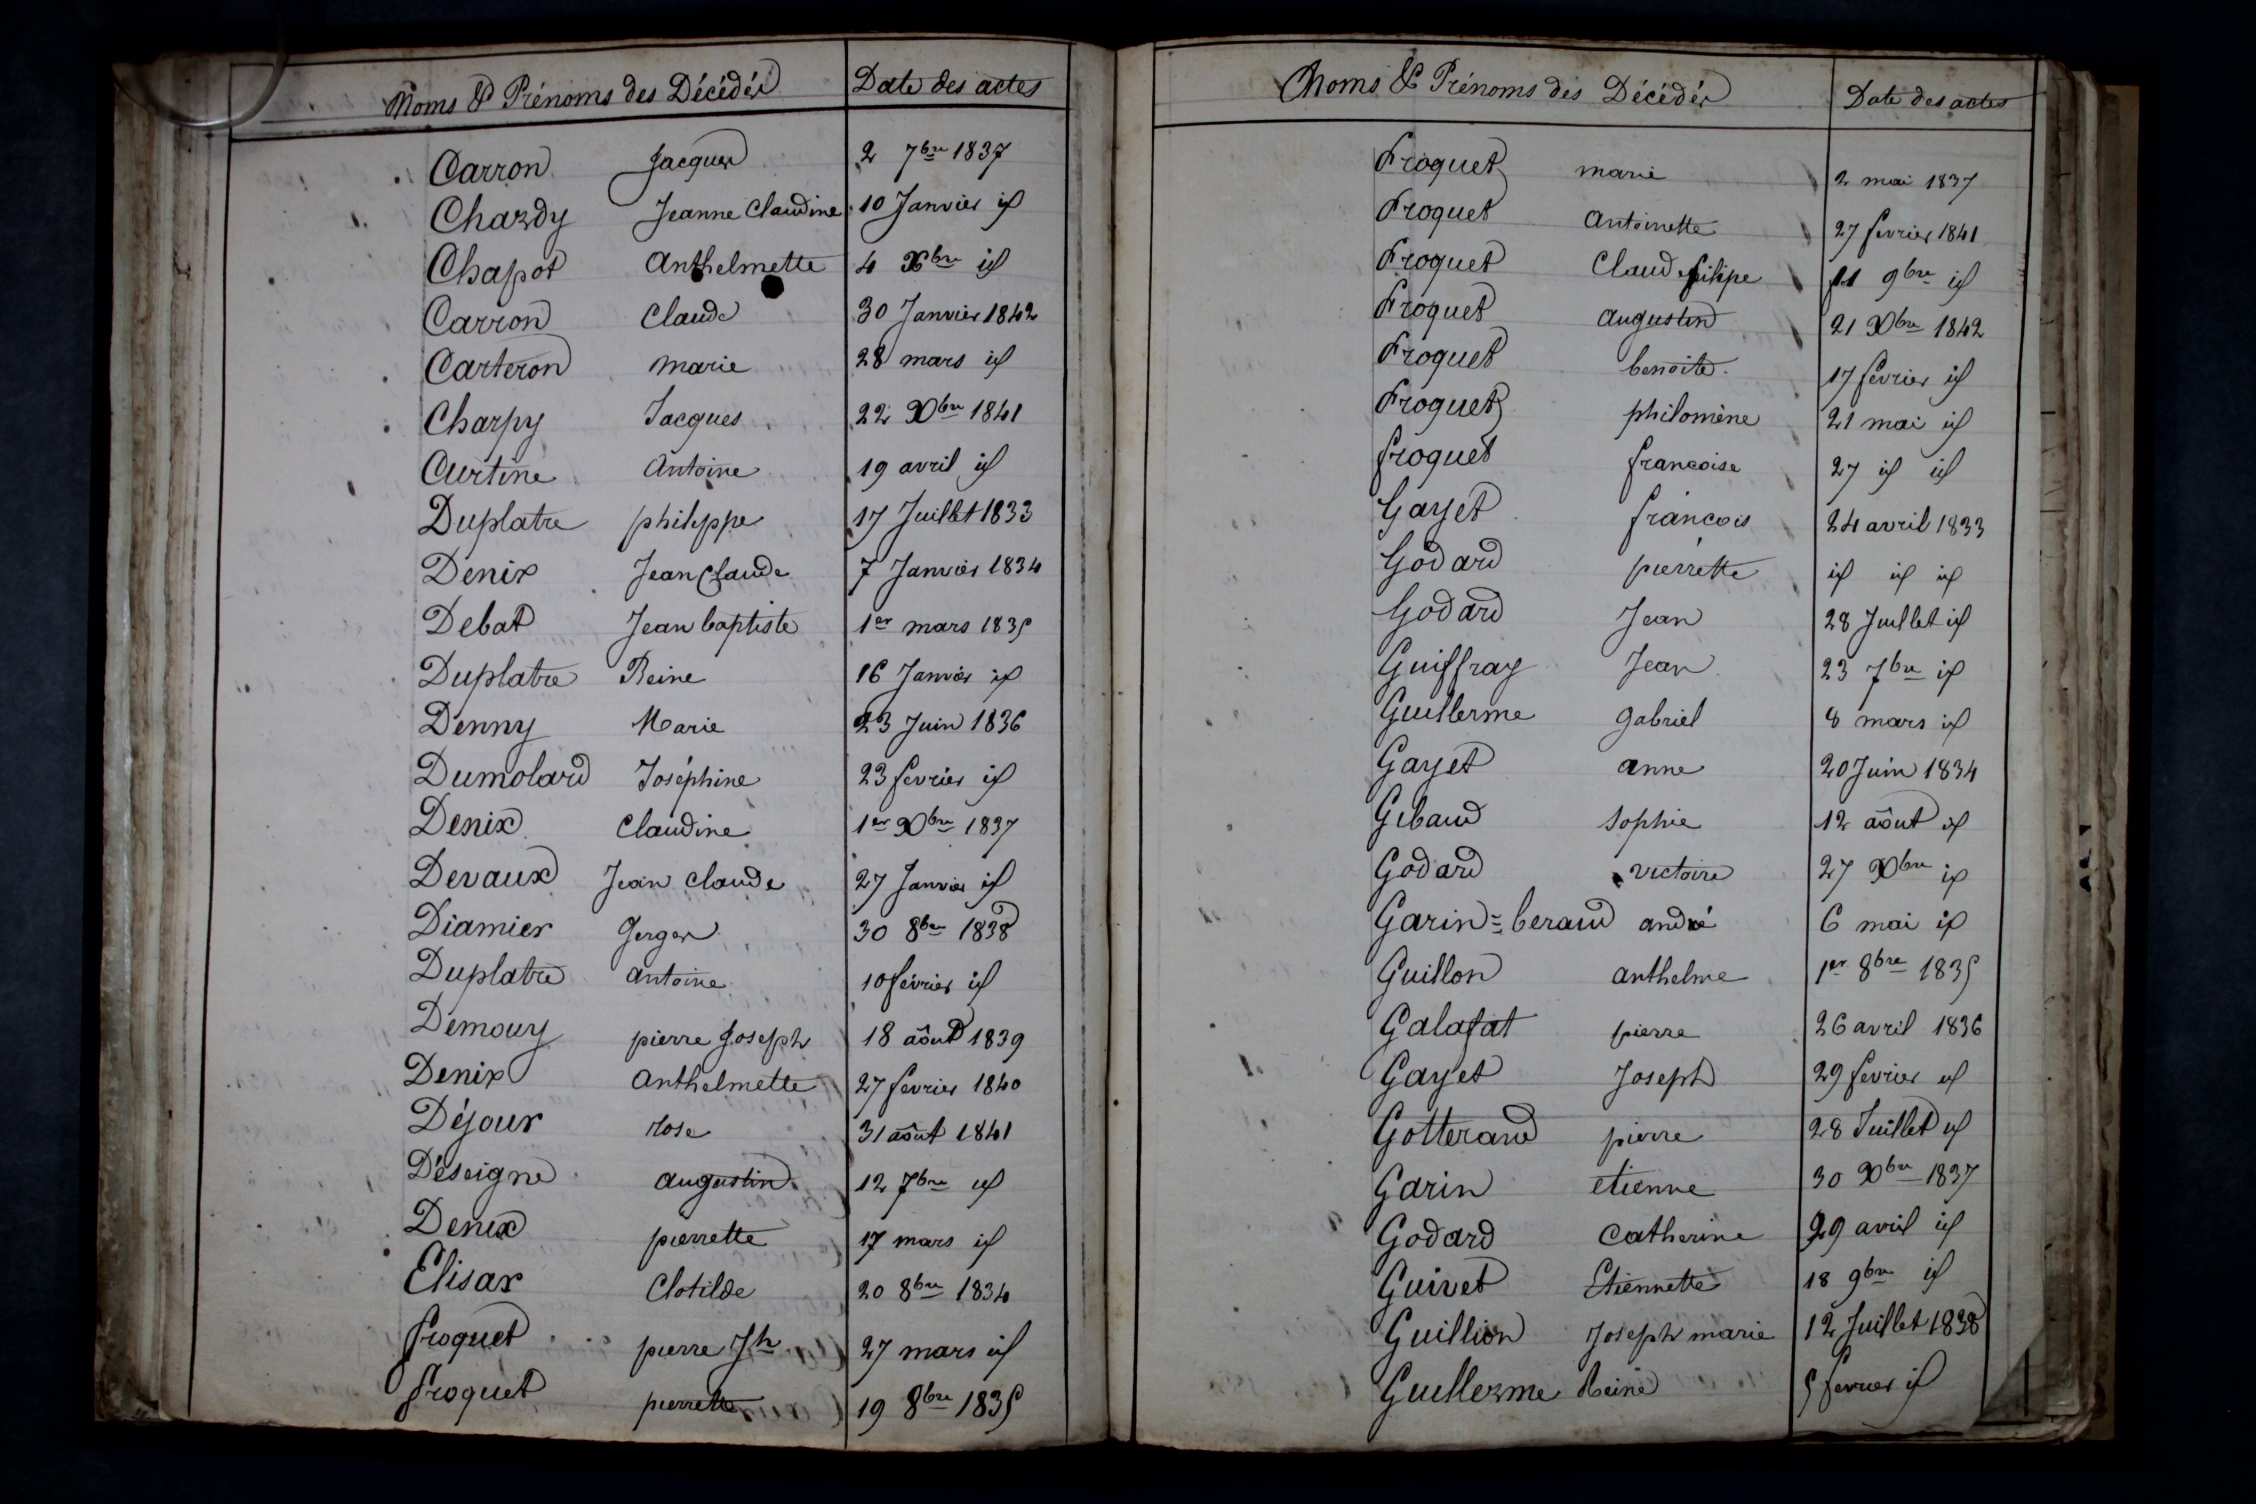 Noms & Prénoms des Décédés Date des actes
Carron Jacques 2 7bre 1837
Chardy Jeanne Claudine 10 Janvier id
Chapot Anthelmette 4 Xbre id
Carron Claude 30 Janvier 1842
Carteron marie 28 mars id
Charpy Jacques 22 Xbre 1841
Curtine Antoine 19 avril id
Duplatre philippe 17 Juillet 1833
Denix Jean Claude 7 Janvier 1834
Debat Jean baptiste 1er mars 1835
Duplatre Reine 16 Janvier id
Denny Marie 23 Juin 1836
Dumolard Joséphine 23 fevrier id
Denix Claudine 1er Xbre 1837
Devaux Jean claude 27 Janvier id
Diamier Gerger 30 8bre 1838
Duplatre antoine 10 février id
Demouy pierre Joseph 18 aôut 1839
Denix Anthelmette 27 fevrier 1840
Déjour rose 31 aôut 1841
Déseigne augustin 12 7bre id
Denix pierrette 17 mars id
Elisar Clotilde 20 8bre 1834
froquet pierre Jh 27 mars id
froquet pierrette 19 8bre 1835
Noms & Prénoms des Décédés Date des actes
Froquet marie 2 mai 1837
Froquet Antoinette 27 fevrier 1841
Froquet Claude filipe 11 9bre id
Froquet augustin 21 Xbre 1842
Froquet benoite. 17 fevrier id
Froquet philomène 21 mai id
froquet francoise 27 id id
Gayet francois 24 avril 1833
Godard pierrette id id id
Godard Jean 28 Juillet id
Guiffray Jean 23 7bre id
Guillerme gabriel 8 mars id
Gayet anne 20 Juin 1834
Gibaud sophie 12 aôut id
Godard victoire 27 Xbre id
Garin=beraud andré 6 mai id
Guillon anthelme 1er 8bre 1835
Galafat pierre 26 avril 1836
Gayet Joseph 29 fevrier id
Gotteraud pierre 28 Juillet id
Garin etienne 30 Xbre 1837
Godard Catherine 29 avril id
Guivet Etiennette 18 9bre id
Guillion Joseph marie 12 Juillet 1838
Guillerme Reine 5 fevrier id